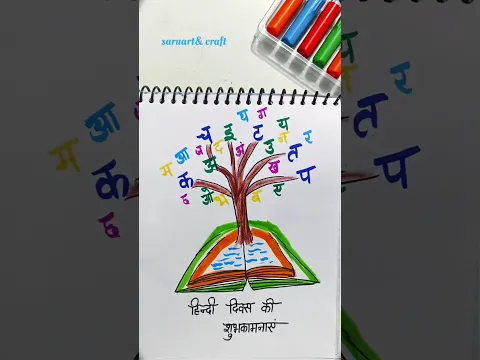 saruart& craft
य ग
च इ ट य
आ उ न र
म अ अं त
क ख
प
ओ भ ब ए
हिन्दी दिवस की
शुभकामनाएं